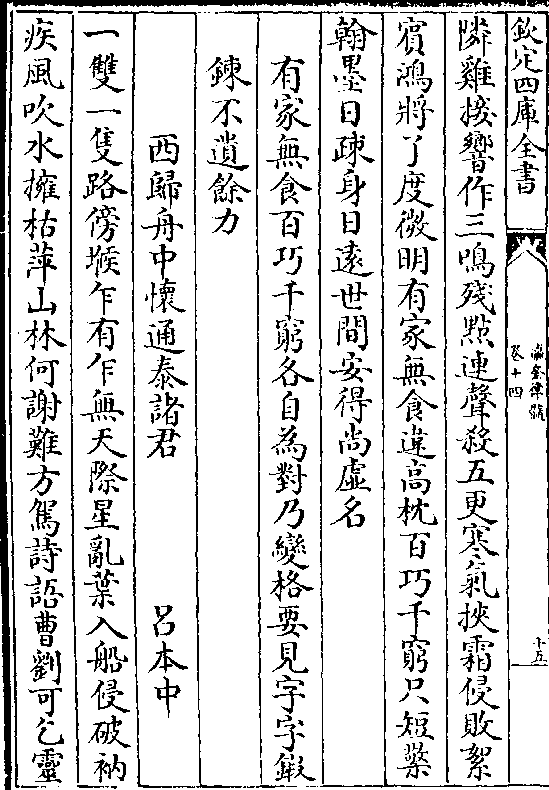 欽定四庫全書
瀛奎律髓
卷十四
十五
隣雞接響作三鳴殘點連聲殺五更寒氣挾霜侵敗絮
賓鴻將了度微明有家無食違高枕百巧千窮只短檠
翰墨日疎身日逺世間安得尚虚名
有家無食百巧千窮各自為對乃變格要見字字鍛
鍊不遺餘力
西歸舟中懷通泰諸君
吕本中
一雙一隻路傍堠乍有乍無天際星亂葉入船侵破衲
疾風吹水擁枯萍山林何謝難方駕詩語曹劉可乞靈